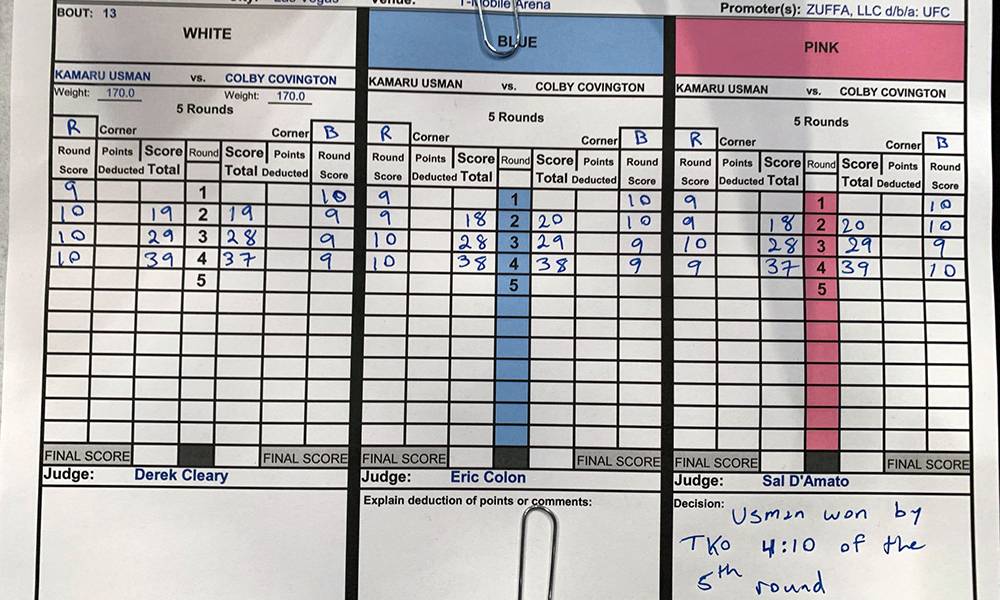 BOUT: 13
T-Mobile Arena
Promoter(s): ZUFFA, LLC d/b/a: UFC
WHITE
BLUE
PINK
KAMARU USMAN vs. COLBY COVINGTON
KAMARU USMAN vs. COLBY COVINGTON
KAMARU USMAN vs. COLBY COVINGTON
Weight: 170.0 Weight: 170.0
5 Rounds
5 Rounds
5 Rounds
R Corner Corner B
R Corner Corner B
R Corner Corner B
Round Score Points Deducted Score Total Round Score Total Points Deducted Round Score
Round Score Points Deducted Score Total Round Score Total Points Deducted Round Score
Round Score Points Deducted Score Total Round Score Total Points Deducted Round Score
9 1 10
10 19 2 19 9
10 29 3 28 9
10 39 4 37 9
5
9 1 10
9 18 2 20 10
10 28 3 29 9
10 38 4 38 9
5
9 1 10
9 18 2 20 10
10 28 3 29 9
9 37 4 39 10
5
FINAL SCORE FINAL SCORE
FINAL SCORE FINAL SCORE
FINAL SCORE FINAL SCORE
Judge: Derek Cleary
Judge: Eric Colon
Judge: Sal D'Amato
Explain deduction of points or comments:
Decision: Usman won by
TKO 4:10 of the
5th round